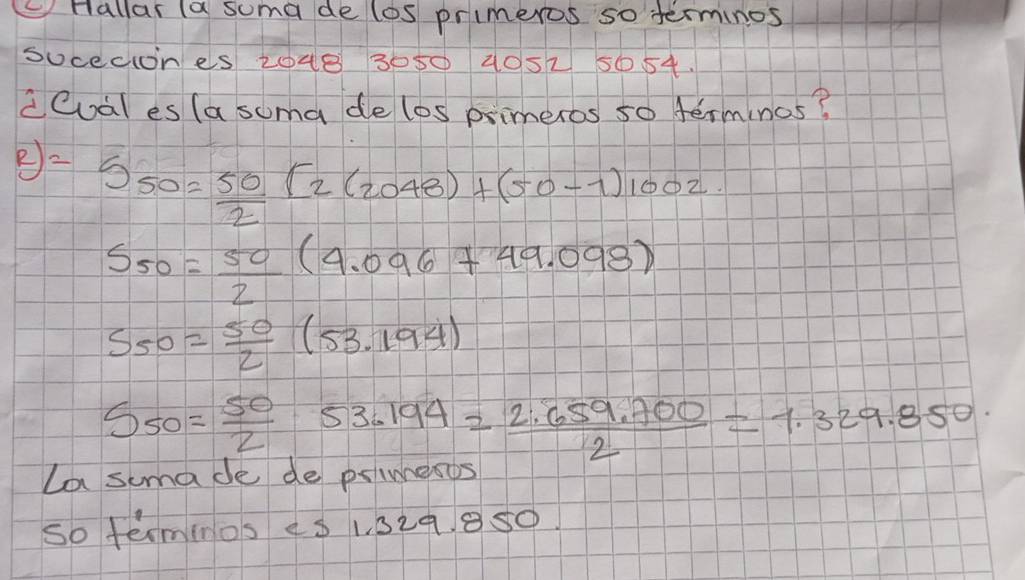 ② Hallar la suma de los primeros 50 términos
suceción es 2048 3050 4052 5054.
¿Cuál es la suma de los primeros 50 términos?
R)= S50 = 50/2 [2(2048) + (50-1)1002.
S50 = 50/2 (4.096 + 49.098)
S50 = 50/2 (53.194)
S50 = 50/2 53.194 = 2.659.700/2 = 1.329.850.
La suma de de primeros
50 términos es 1.329.850.